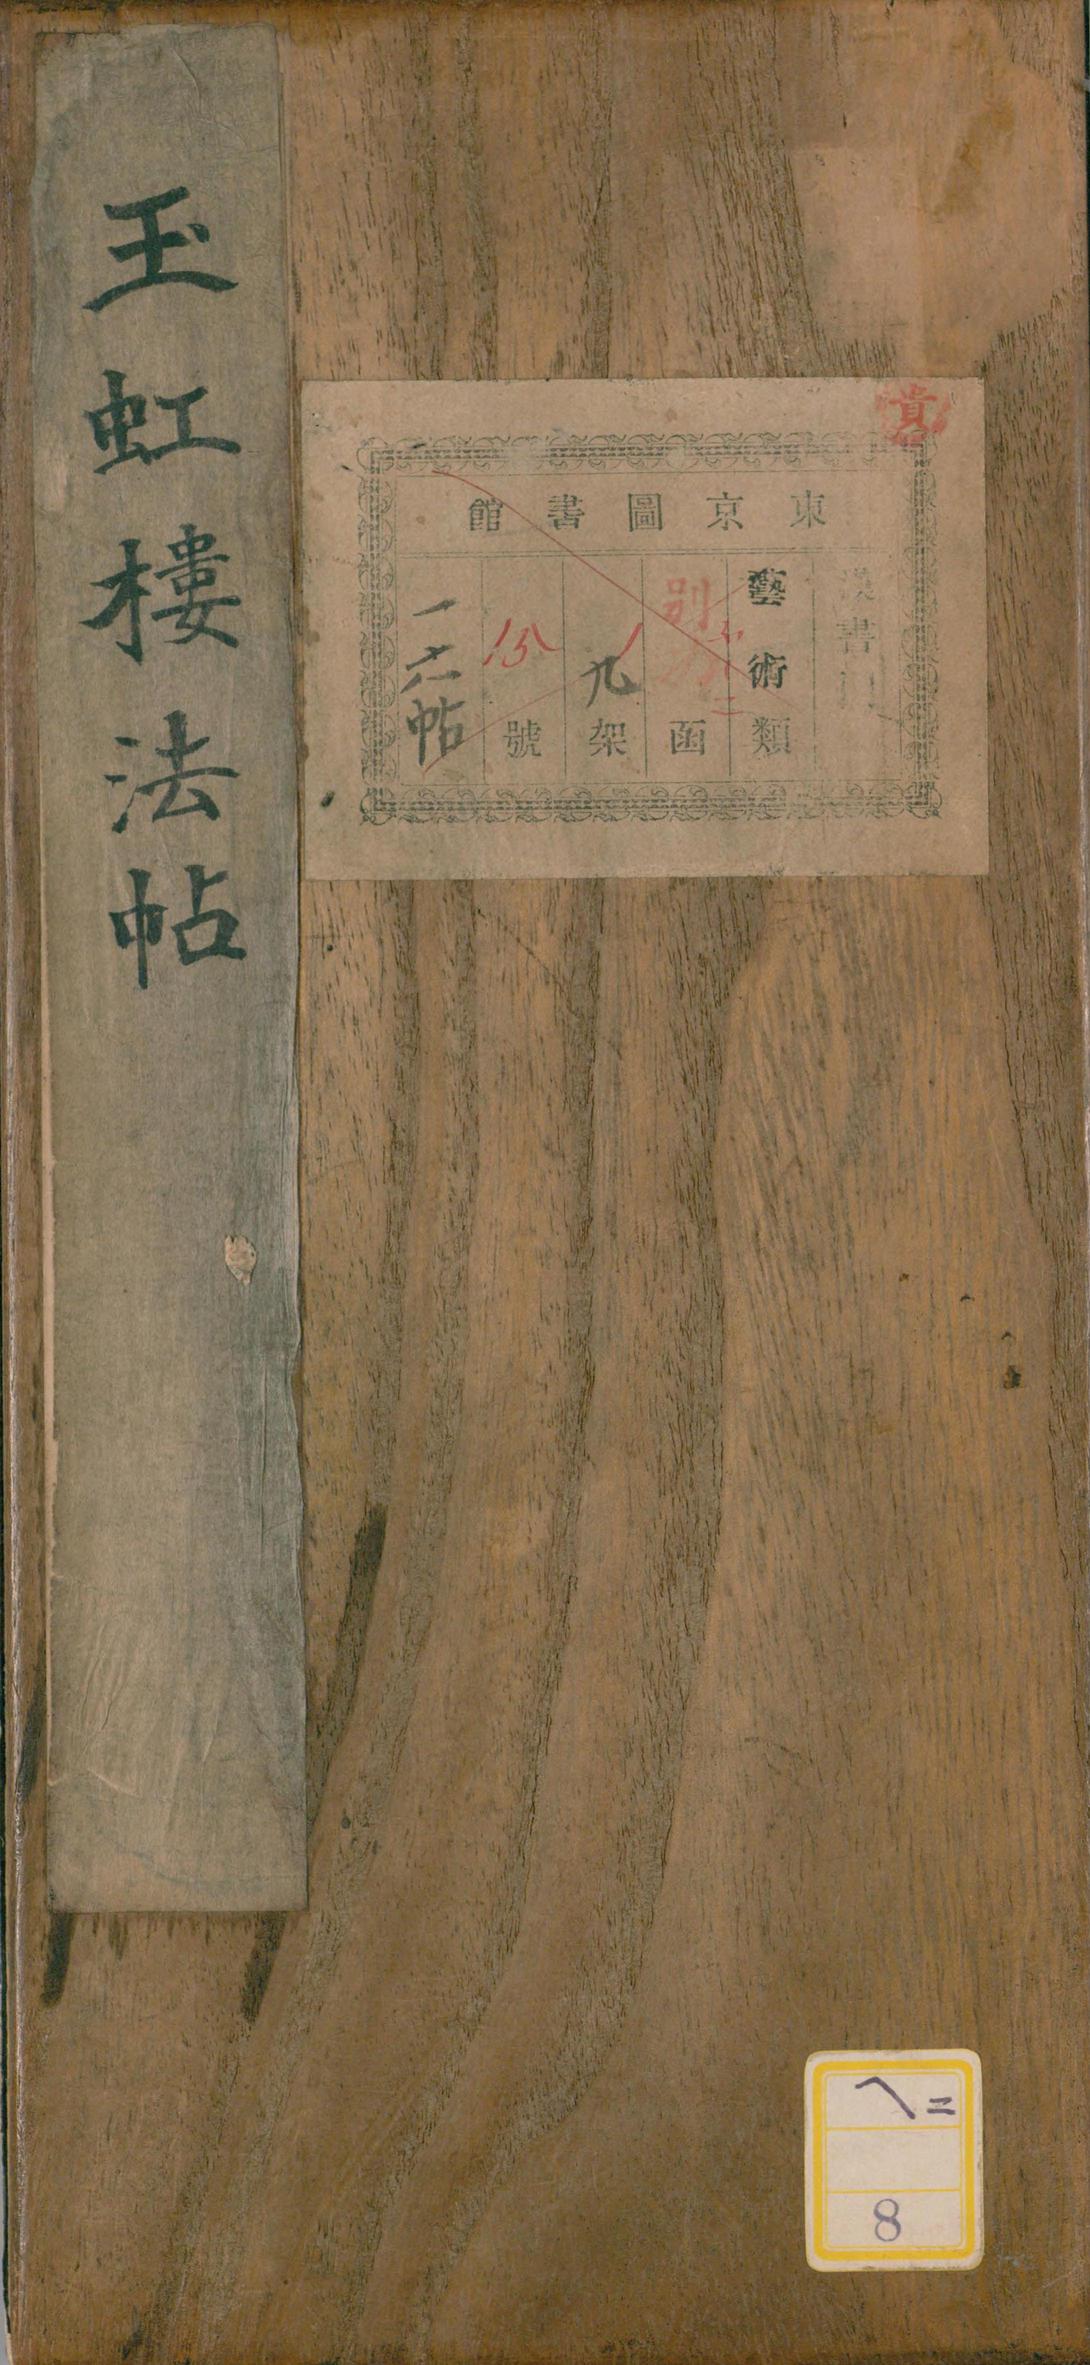 玉虹樓法帖
貴
東京圖書館
漢書門
藝術類
別
函
九架
號
一六帖
ヘニ
8